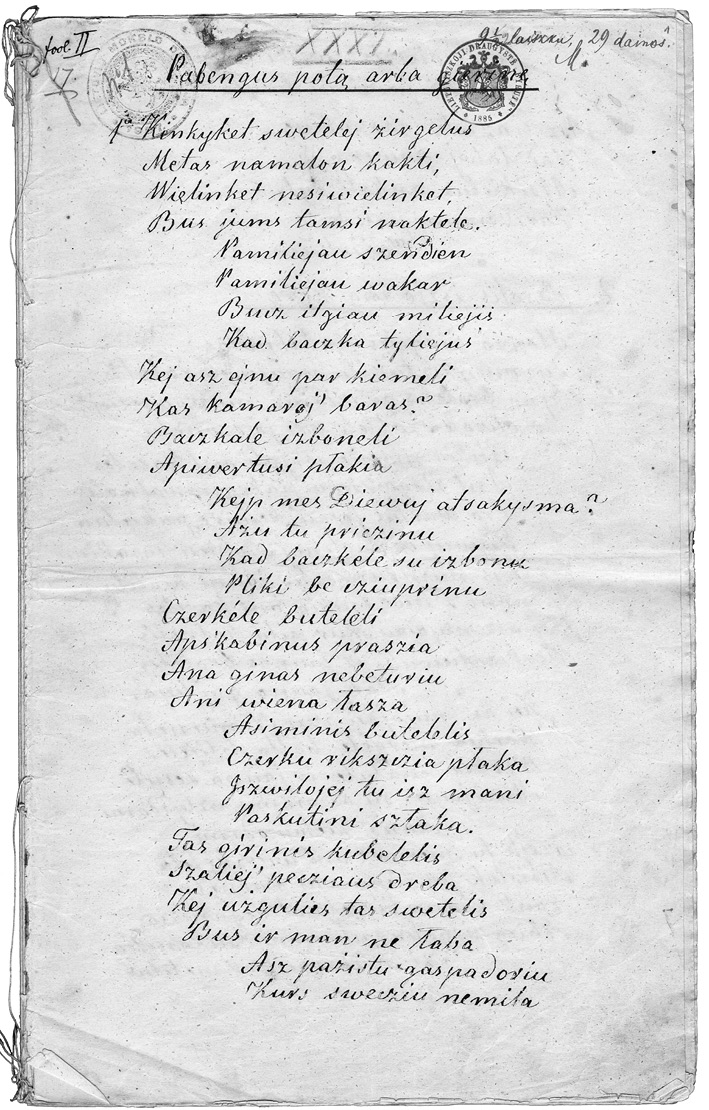 fool II
XXXI
29 dainos.
M.
17
Pabengus potą arba
LIETUWISZKOJI DRAUGYSTE TILŻEJE
1885
1 Kinkyket swetelej żirgelus
Metas namalon kakti,
Więlinket nesiwielinket,
Bus jums tamsi naktele.
Pamiliejau szendien
Pamiliejau wakar
Bucz ilgiau miliejis
Kad baczka tyliejus
Kej asz ejnu par kiemeli
Kas kamaroj' baras?
Baczkale izboneli
Apiwertusi płakia
Kejp mes Diewuj atsakysma?
Ażu tu priczinu
Kad baczkéle su izbonu
Pliki be cziuprinu
Czerkéle buteleli
Apskabinus praszia
Ana ginas nebeturiu
Ani wiena łasza
Asiminis butelelis
Czerku rikszczia płaka
Iszwilojej tu isz mani
Paskutini sztaka.
Tas girinis kubelelis
Szaliej' pecziaus dreba
Kej użgulies tas swetelis
Bus ir man ne łaba
Asz pażistu gaspadoriu
Kurs swecziu nemiła